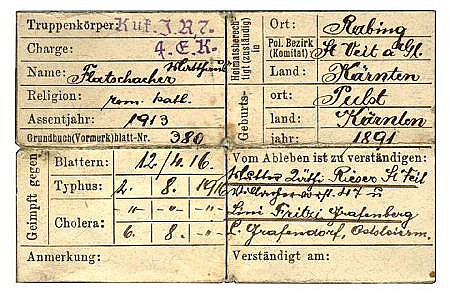 Truppenkörper K.u.k. I.R. 7.
Charge: 4. E.K.
Name: Flatschacher Matthäus
Religion: röm. kath.
Assentjahr: 1913
Grundbuch(Vormerk)blatt-Nr. 380
Heimatsberechtigt (zuständig) in
Ort: Rabing
Pol. Bezirk (Komitat): St Veit a Gl.
Land: Kärnten
Geburts-
ort: Pulst
land: Kärnten
jahr: 1891
Geimpft gegen
Blattern: 12/4. 16.
Typhus: 2. 8. 1916
" " "
Cholera: 6. 8. "
Anmerkung:
Vom Ableben ist zu verständigen:
Rieser St Veit
47 u
Fritzi Grafenberg
Grafendorf, Oststeierm.
Verständigt am: